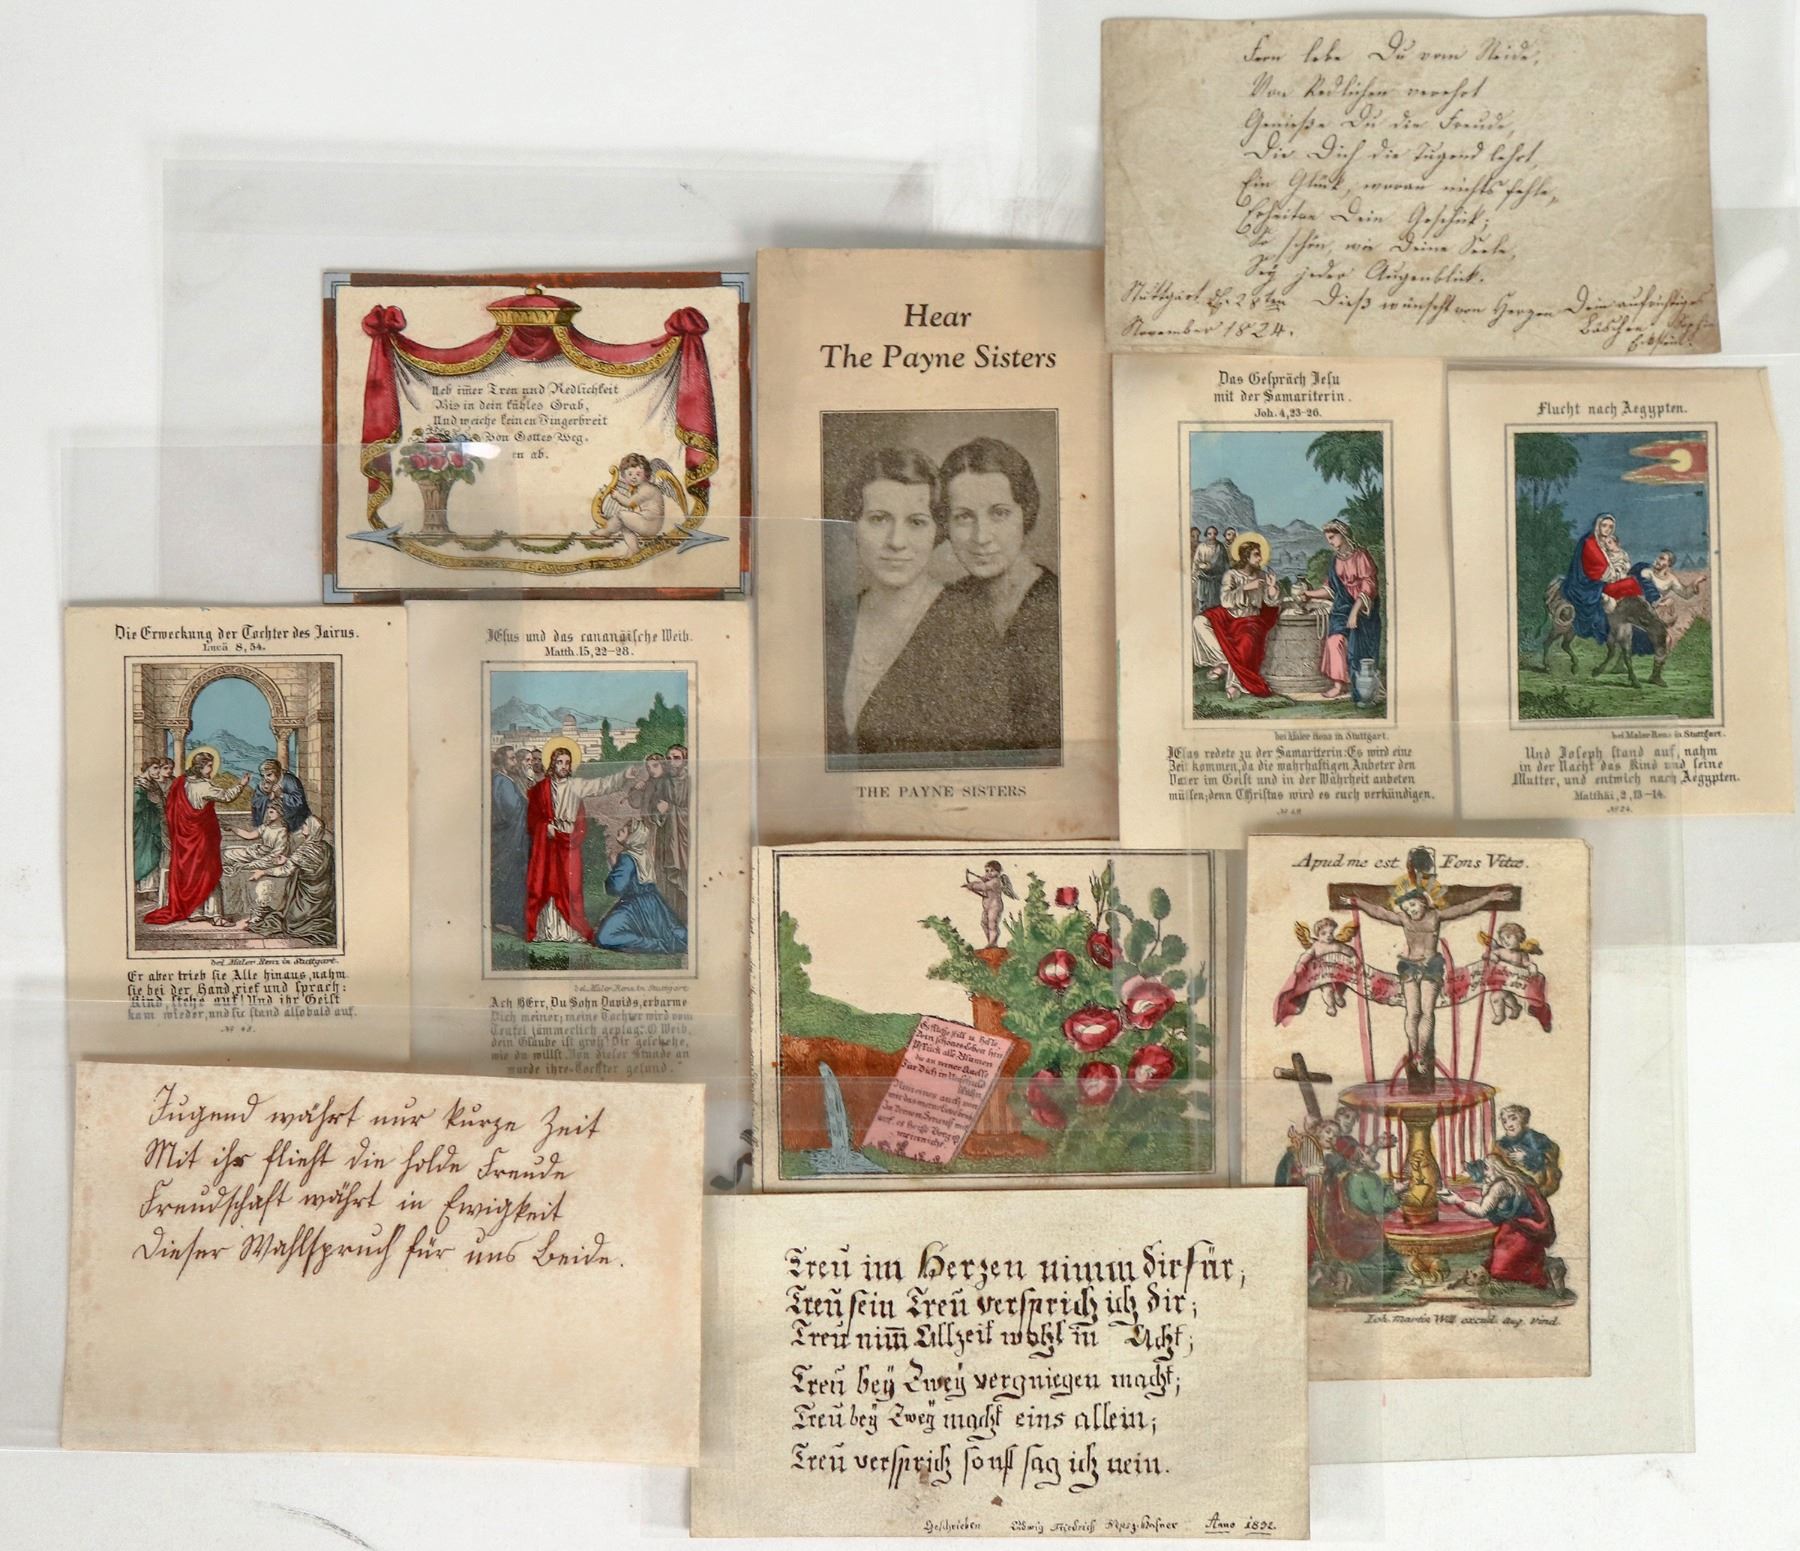 Fern lebe Du vom Neide,
Von Redlichen verehrt
Genieße Du die Freude,
Die Dich die Tugend lehrt,
Ein Glück, woran nichts fehle,
Erheitre Dein Geschick;
So schön, wie Deine Seele,
Sey jeder Augenblick.
Stuttgart d. 28ten
November 1824.
Dieß wünscht von Herzen Dein aufrichtiges
Bäschen
Ueb im̅er Treu und Redlichkeit
Bis in dein kühles Grab,
Und weiche keinen Fingerbreit
Von Gottes Weg-
en ab.
Hear
The Payne Sisters
THE PAYNE SISTERS
Das Gespräch Jesu
mit der Samariterin.
Joh. 4, 23-26.
bei Maler Renz in Stuttgart.
JEsus redete zu der Samariterin: Es wird eine
Zeit kommen, da die wahrhaftigen Anbeter den
Vater im Geist und in der Wahrheit anbeten
müssen; denn CHristus wird es euch verkündigen.
Flucht nach Aegypten.
bei Maler Renz in Stuttgart.
Und Joseph stand auf, nahm
in der Nacht das Kind und seine
Mutter, und entwich nach Aegypten.
Matthäi, 2, 13-14.
No 24.
Die Erweckung der Tochter des Jairus.
Lucä 8, 54.
bei Maler Renz in Stuttgart.
Er aber trieb sie Alle hinaus, nahm
sie bei der Hand, rief und sprach:
Kind, stehe auf! Und ihr Geist
kam wieder, und sie stand alsobald auf.
No 43.
JEsus und das cananäische Weib.
Matth. 15, 22-28.
bei Maler Renz in Stuttgart
Ach HErr, Du Sohn Davids, erbarme
Dich meiner; meine Tochter wird vom
Teufel jämmerlich geplagt. O Weib,
dein Glaube ist groß! Dir geschehe,
wie du willst. Von dieser Stunde an
wurde ihre Tochter gesund.
Es fliesse still u. helle
Dein schönes Leben hin
Pflück alle Blumen
die an seiner Quelle
Für Dich in Unschuld
blühn
Apud me est Fons Vitæ.
Joh. Martin Will excud. aug. vind.
Jugend währt nur kurze Zeit
Mit ihr flieht die holde Freude
Freundschaft währt in Ewigkeit
Dieser Wahlspruch für uns Beide.
Treu im Herzen nimm dir für;
Treu sein Treu versprich ich dir;
Treu nim̅ Allzeit wohl in Acht;
Treu bey Zwey vergniegen macht;
Treu bey Zwey macht eins allein;
Treu versprich sonst sag ich nein.
Geschrieben Ludwig Friedrich Anno 1832.